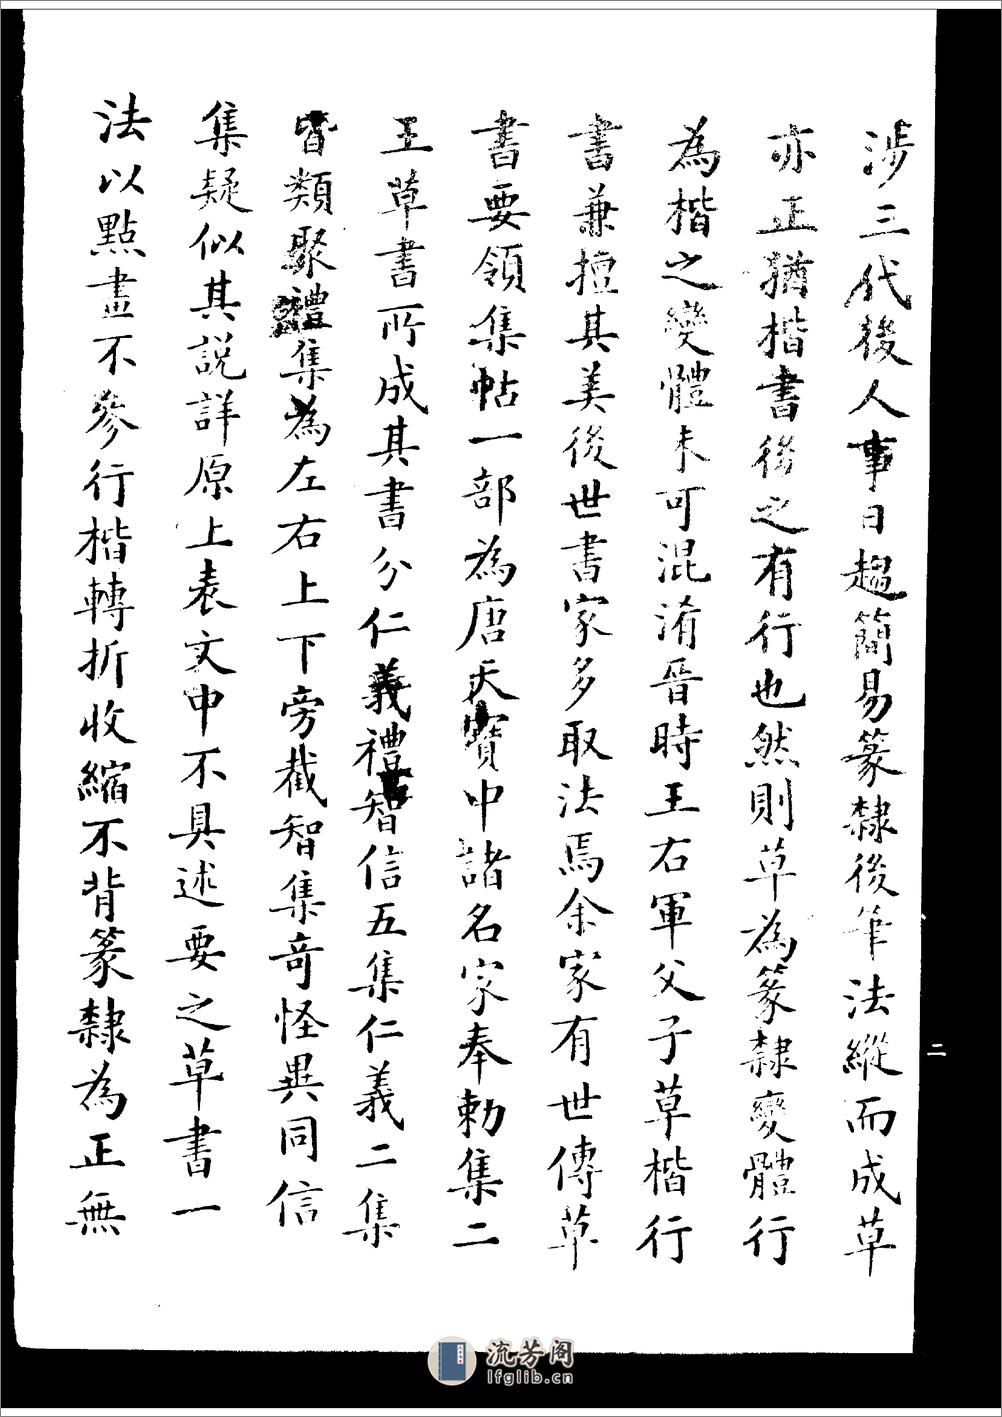 涉三代後人事日趨簡易篆隸後筆法縱而成草
亦正猶楷書後之有行也然則草為篆隸變體行
為楷之變體未可混淆晉時王右軍父子草楷行
書兼擅其美後世書家多取法焉余家有世傳草
書要領集帖一部為唐天寶中諸名家奉勅集二
王草書所成其書分仁義禮智信五集仁義二集
皆類聚禮集為左右上下旁截智集奇怪異同信
集疑似其說詳原上表文中不具述要之草書一
法以點畫不參行楷轉折收縮不背篆隸為正無
二
流芳阁
lfglib.cn